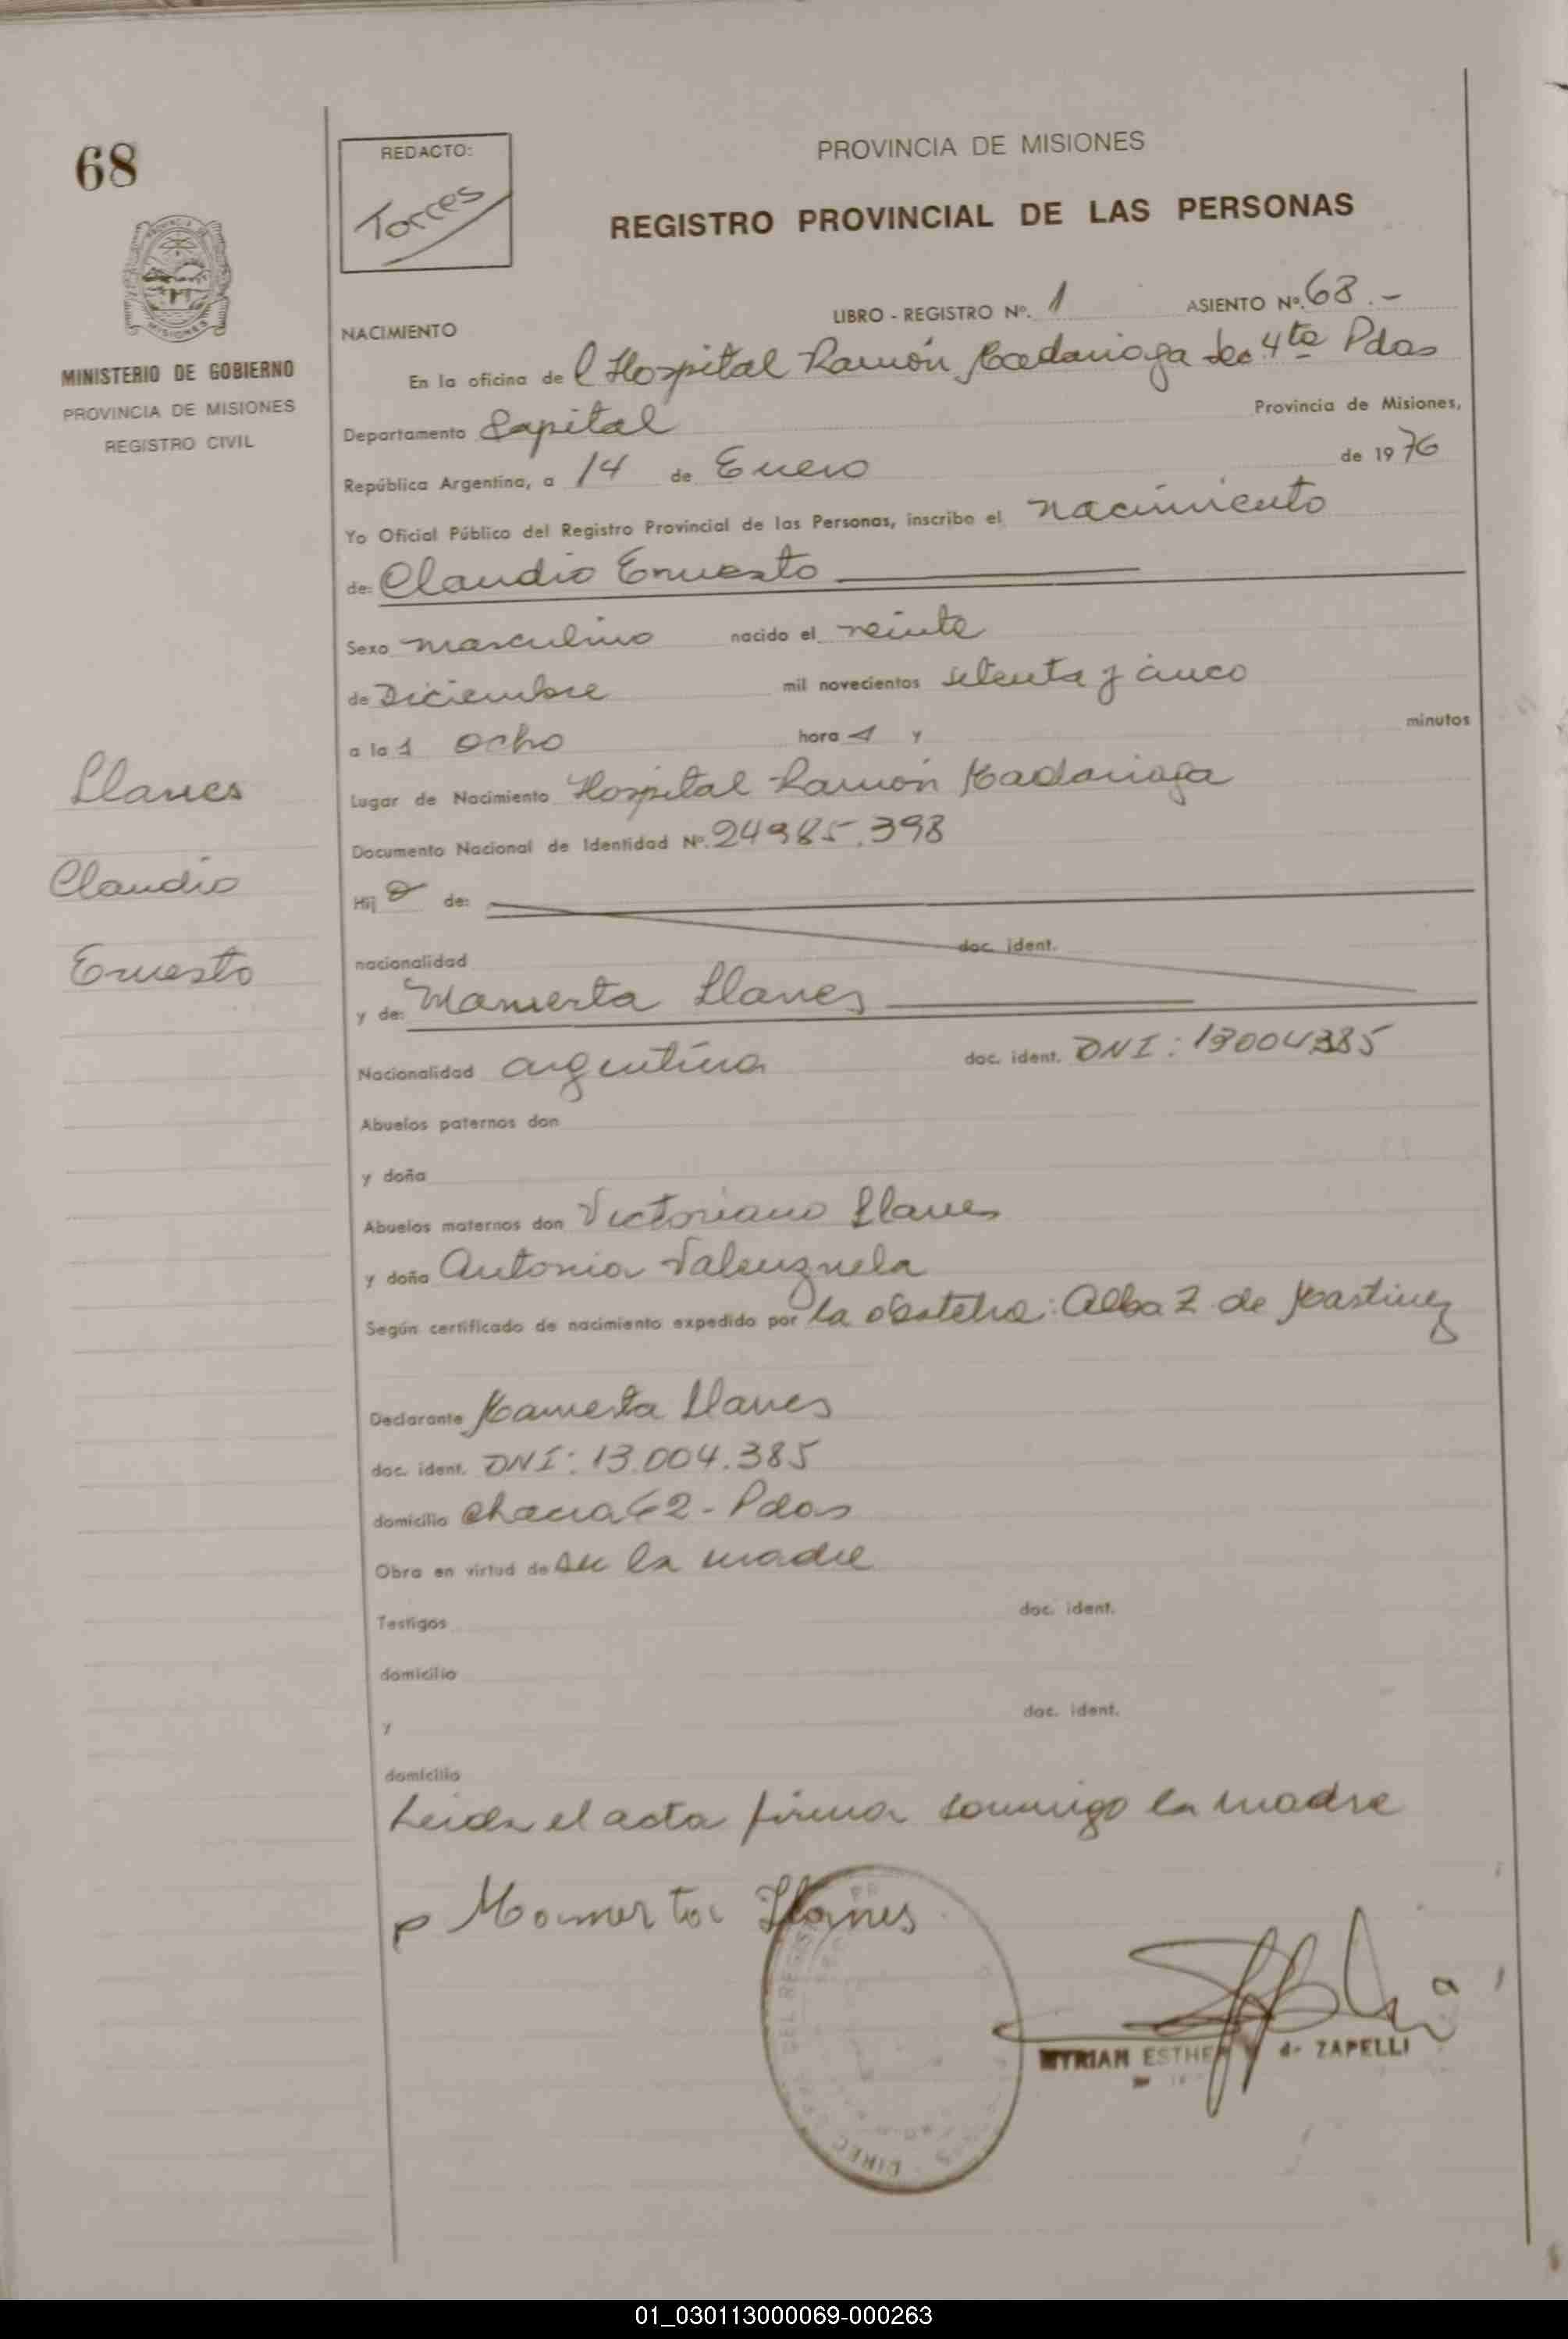 68
REDACTO:
Torces
PROVINCIA DE MISIONES
REGISTRO PROVINCIAL DE LAS PERSONAS
MISIONES
MINISTERIO DE GOBIERNO
PROVINCIA DE MISIONES
REGISTRO CIVIL
LIBRO - REGISTRO Nº. 1 ASIENTO Nº. 68.-
NACIMIENTO
En la oficina de l Hospital Ramón Madariaga Sec 4ta Pdas
Departamento Capital Provincia de Misiones,
República Argentina, a 14 de Enero de 1976
Yo Oficial Público del Registro Provincial de las Personas, inscribo el nacimiento
de: Claudio Ernesto
Sexo masculino nacido el veinte
de Diciembre mil novecientos setenta y cinco
a la s ocho hora s y minutos
Lugar de Nacimiento Hospital Ramón Madariaga
Documento Nacional de Identidad Nº. 24985.398
Hij o de:
nacionalidad doc. ident.
y de: Mamerta Llanes
Nacionalidad argentina doc. ident. DNI: 13004385
Abuelos paternos don
y doña
Abuelos maternos don Victoriano Llanes
y doña Antonia Valenzuela
Según certificado de nacimiento expedido por la obstetra: Alba Z de Martinez
Declarante Mamerta Llanes
doc. ident. DNI: 13.004.385
domicilio Chacra 62 - Pdas
Obra en virtud de ser la madre
Testigos doc. ident.
domicilio
y doc. ident.
domicilio
Leida el acta firma conmigo la madre
Mamerta Llanes
MYRIAN ESTHER de ZAPELLI
DIREC
Llanes
Claudio
Ernesto
01_030113000069-000263